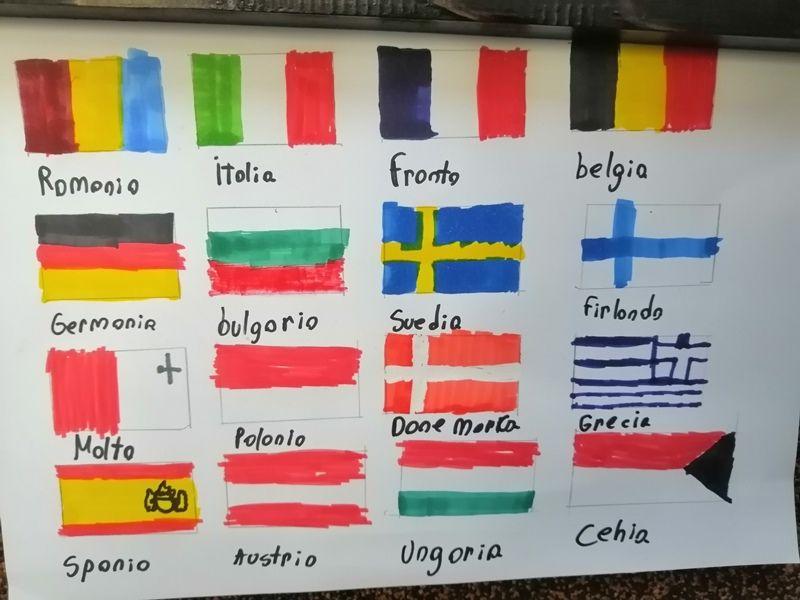 Romania
İtalia
franta
belgia
Germania
bulgaria
Suedia
finlanda
Malta
Polonia
Danemarka
Grecia
Spania
Austria
Ungaria
Cehia